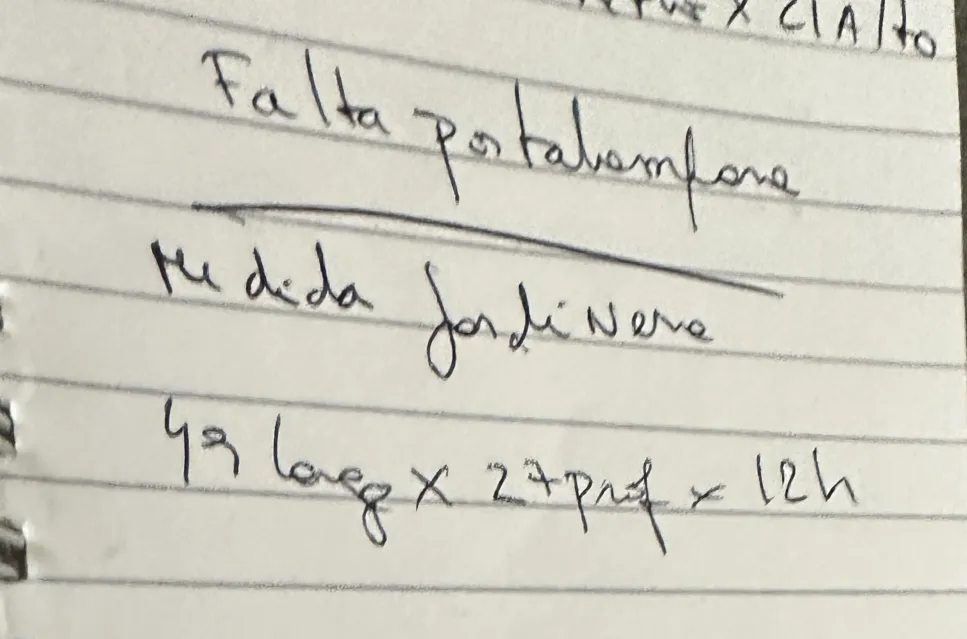 x C/Alto
Falta portalampara
Medida Jardinera
49 larg x 27 prof x 12h